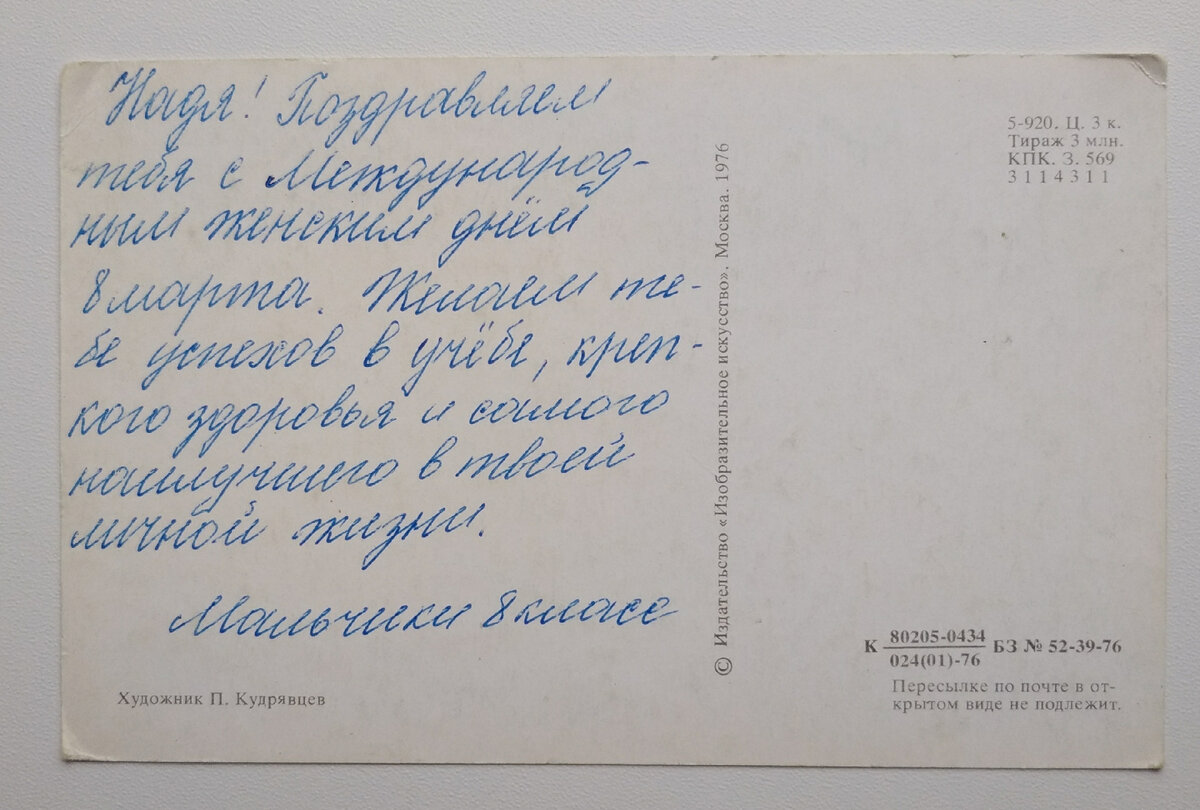 Надя! Поздравляем
тебя с Международ-
ным женским днём
8 марта. Желаем те-
бе успехов в учёбе, креп-
кого здоровья и самого
наилучшего в твоей
личной жизни.
Мальчики 8 класс
Художник П. Кудрявцев
© Издательство «Изобразительное искусство». Москва. 1976
5-920. Ц. 3 к.
Тираж 3 млн.
КПК. З. 569
3114311
К 80205-0434 БЗ № 52-39-76
024(01)-76
Пересылке по почте в от-
крытом виде не подлежит.